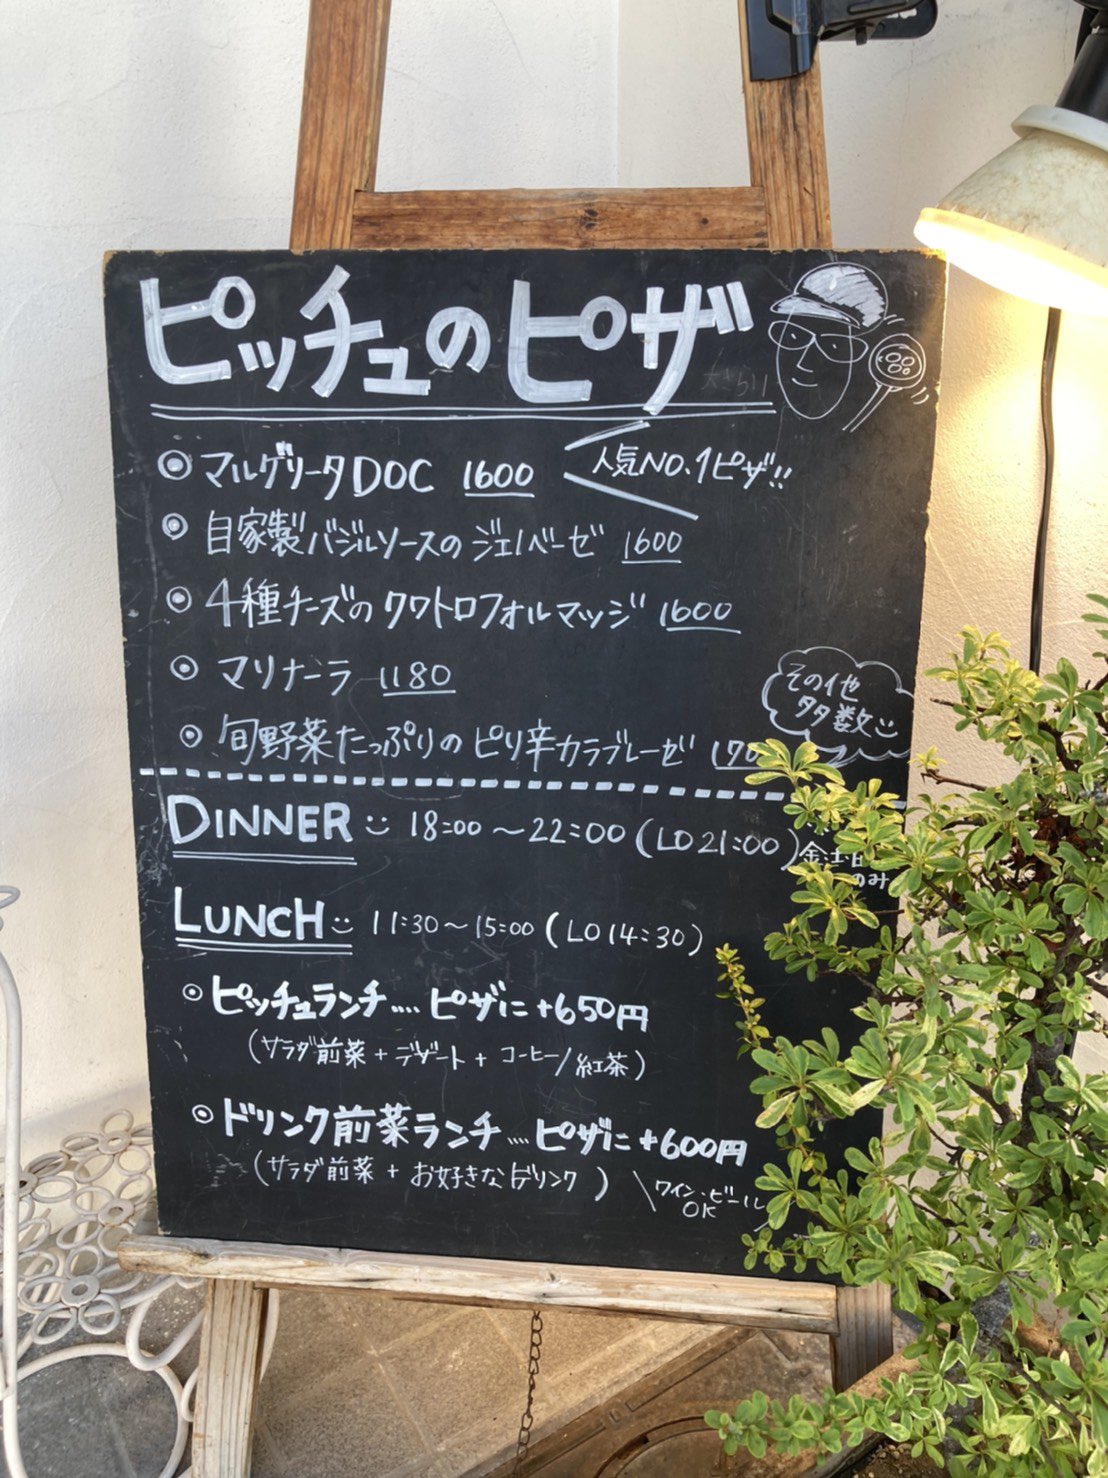 ピッチュのピザ
◎ マルゲリータDOC 1600
人気NO.1ピザ!!
◎ 自家製バジルソースのジェノベーゼ 1600
◎ 4種チーズのクワトロフォルマッジ 1600
◎ マリナーラ 1180
その他
多数
◎ 旬野菜たっぷりのピリ辛カラブレーゼ
DINNER 18:00〜22:00(LO21:00)金土日
のみ
LUNCH 11:30〜15:00(LO14:30)
◎ ピッチュランチ.... ピザに+650円
(サラダ前菜+デザート+コーヒー/紅茶)
◎ ドリンク前菜ランチ.... ピザに+600円
(サラダ前菜+お好きなドリンク)
ワイン・ビール
OK